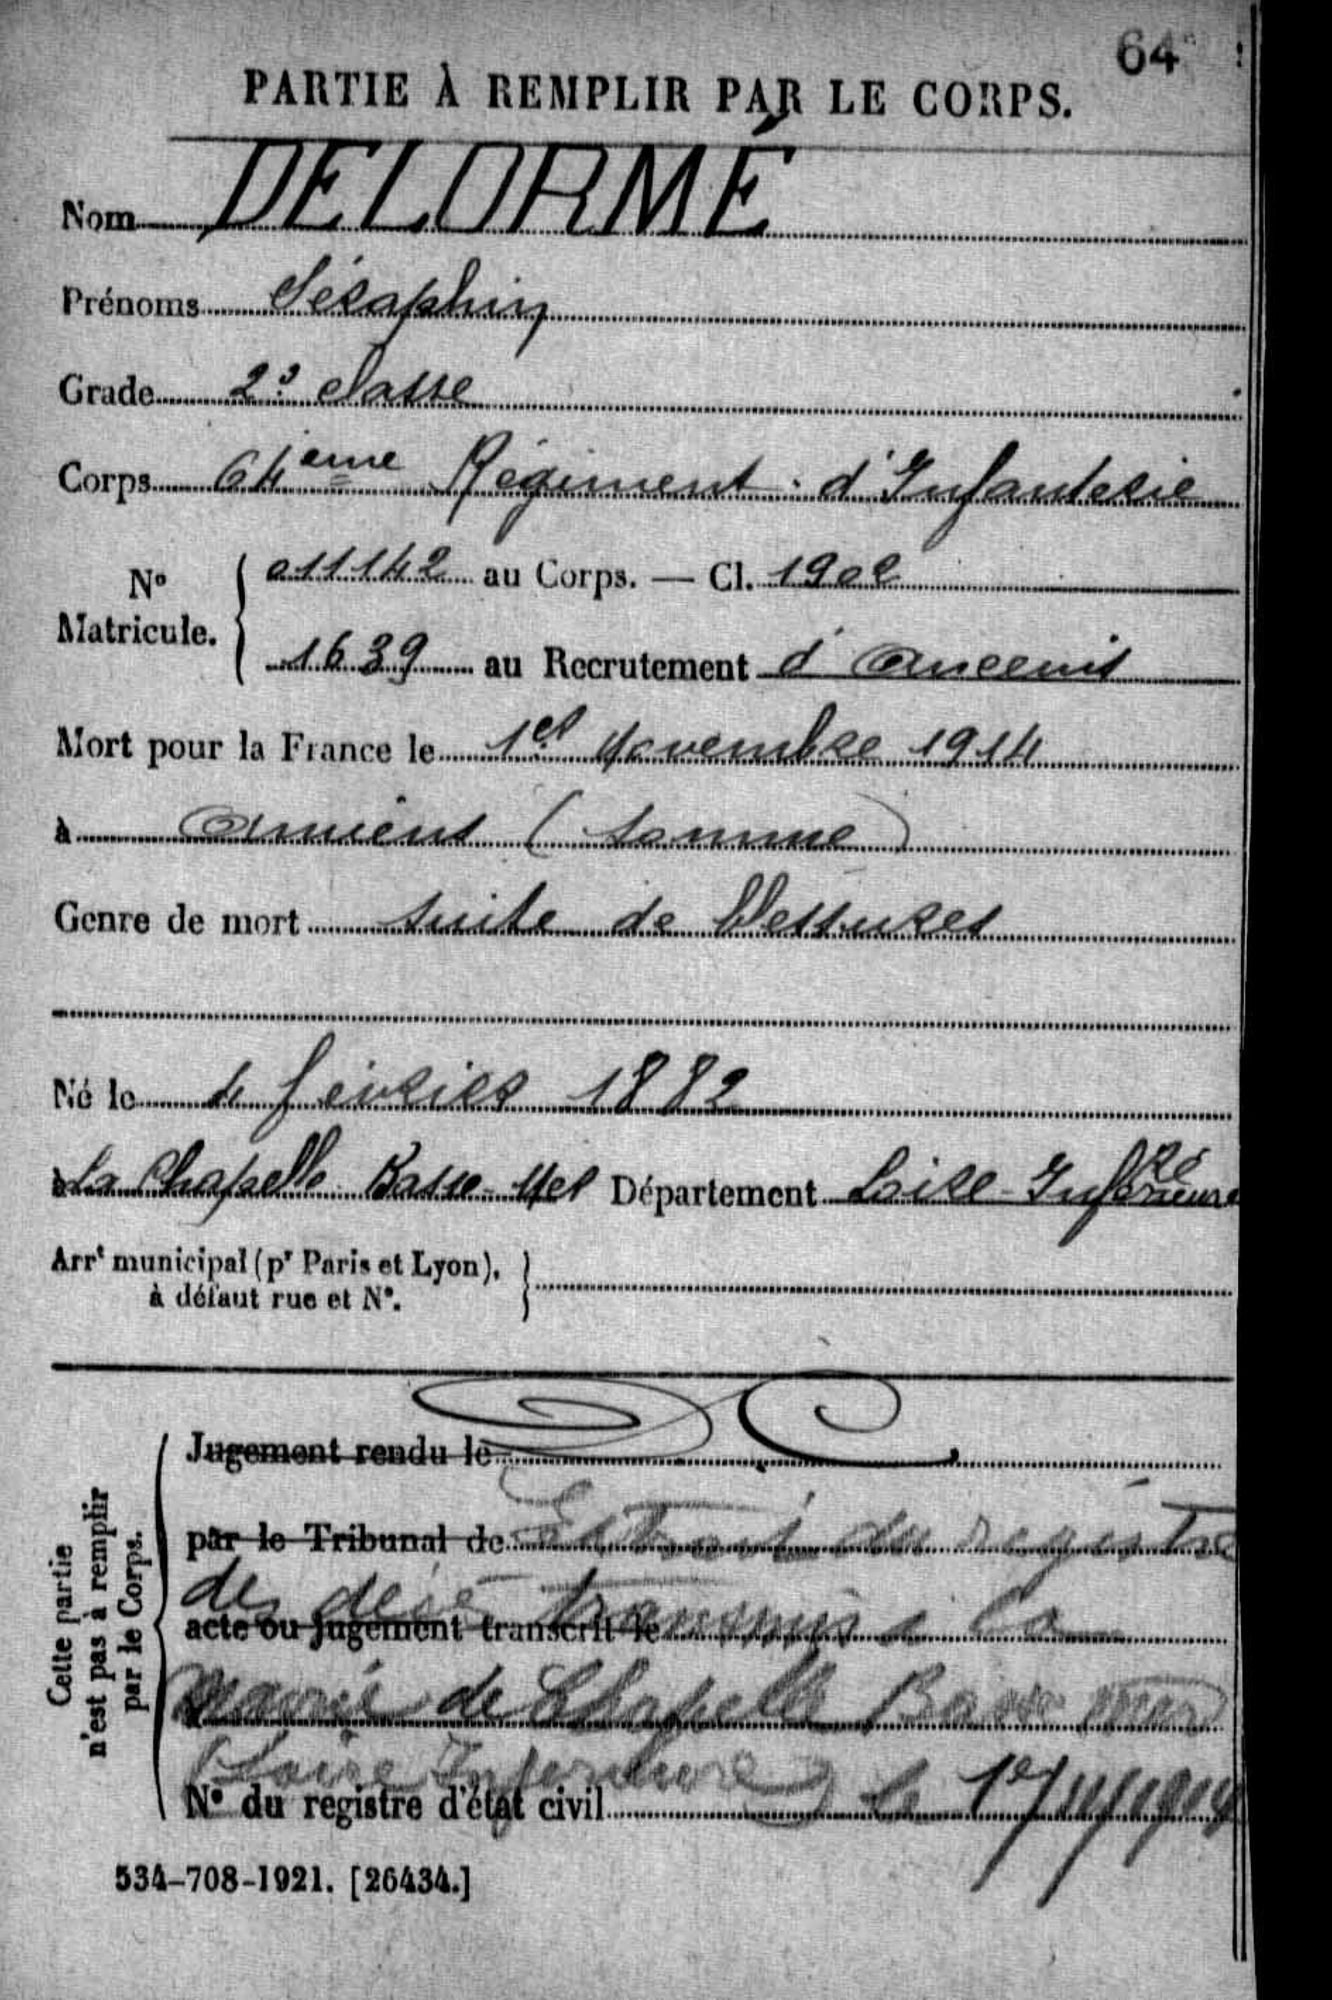 64
PARTIE À REMPLIR PAR LE CORPS.
Nom DELORMÉ
Prénoms Séraphin
Grade 2e classe
Corps 64ème Régiment d'Infanterie
No Matricule. { 011142 au Corps. — Cl. 1902
1639 au Recrutement d'Ancenis
Mort pour la France le 1er Novembre 1914
à Amiens (Somme)
Genre de mort suite de blessures
Né le 4 février 1882
à La Chapelle Basse-Mer Département Loire-Inférieure
Arrt municipal (pr Paris et Lyon), à défaut rue et No. }
Cette partie n'est pas à remplir par le Corps.
Jugement rendu le
par le Tribunal de Extrait du registre
des décès transmis à la
acte ou jugement transcrit le
Mairie de Chapelle Basse mer
(Loire Inférieure) le 1er/11/1914
No du registre d'état civil
534-708-1921. [26434.]